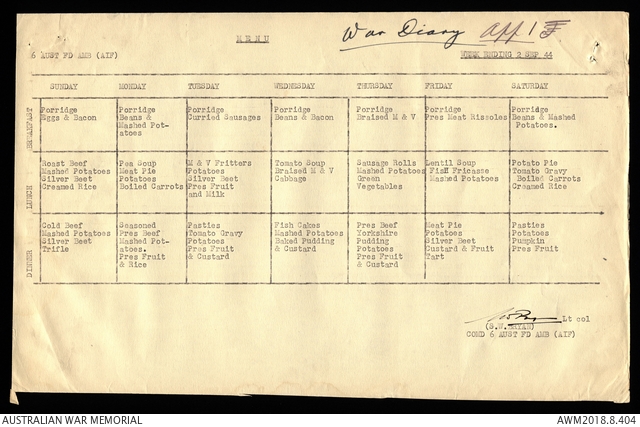 MENU
War Diary App 1
6 AUST FD AMB (AIF)
WEEK ENDING 2 SEP 44
SUNDAY MONDAY TUESDAY WEDNESDAY THURSDAY FRIDAY SATURDAY
BREAKFAST
Porridge
Eggs & Bacon
Porridge
Beans &
Mashed Pot-
atoes
Porridge
Curried Sausages
Porridge
Beans & Bacon
Porridge
Braised M & V
Porridge
Pres Meat Rissoles
Porridge
Beans & Mashed
Potatoes.
LUNCH
Roast Beef
Mashed Potatoes
Silver Beet
Creamed Rice
Pea Soup
Meat Pie
Potatoes
Boiled Carrots
M & V Fritters
Potatoes
Silver Beet
Pres Fruit
and Milk
Tomato Soup
Braised M & V
Cabbage
Sausage Rolls
Mashed Potatoes
Green
Vegetables
Lentil Soup
Fish Fricasse
Mashed Potatoes
Potato Pie
Tomato Gravy
Boiled Carrots
Creamed Rice
DINNER
Cold Beef
Mashed Potatoes
Silver Beet
Trifle
Seasoned
Pres Beef
Mashed Pot-
atoes.
Pres Fruit
& Rice
Pasties
Tomato Gravy
Potatoes
Pres Fruit
& Custard
Fish Cakes
Mashed Potatoes
Baked Pudding
& Custard
Pres Beef
Yorkshire
Pudding
Potatoes
Pres Fruit
& Custard
Meat Pie
Potatoes
Silver Beet
Custard & Fruit
Tart
Pasties
Potatoes
Pumpkin
Pres Fruit
Lt col
(S.W. BRYAN)
COMD 6 AUST FD AMB (AIF)
AUSTRALIAN WAR MEMORIAL
AWM2018.8.404